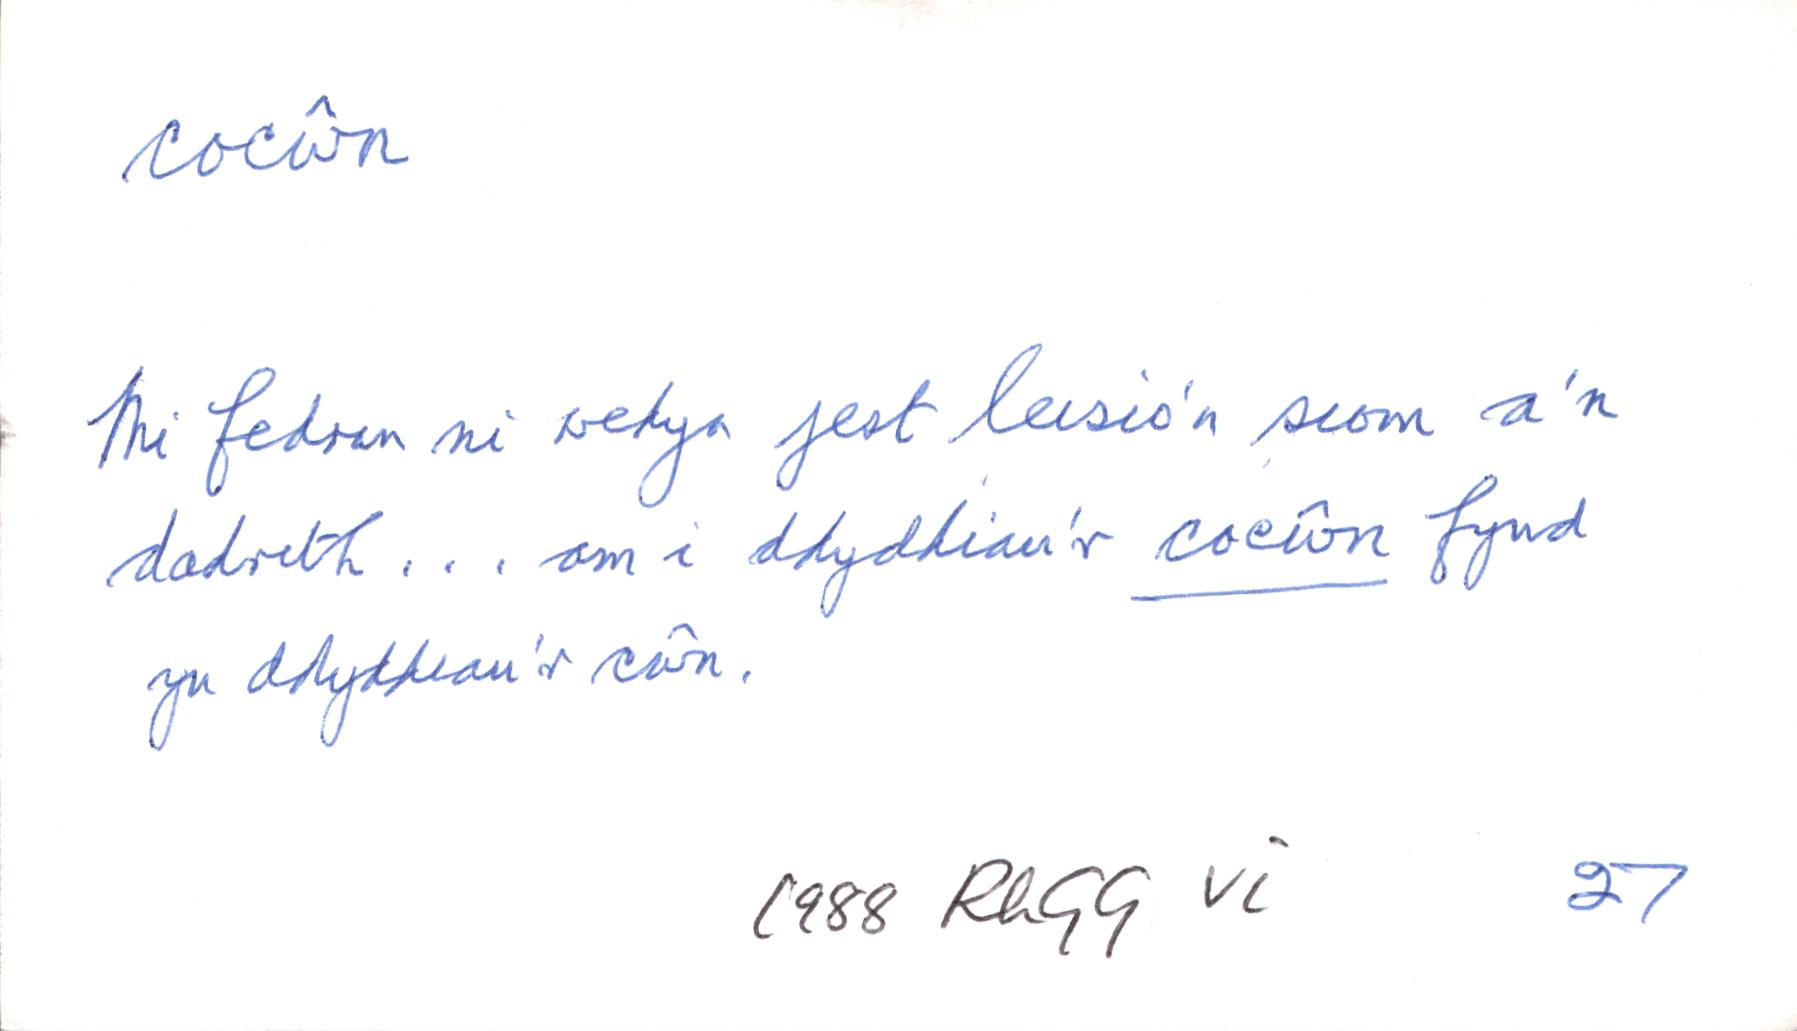 cocŵn
Mi fedran ni wedyn jest leisio'n siom a'n
dadrith... am i ddyddiau'r cocŵn fynd
yn ddyddiau'r cŵn.
1988 RhGG vi 27